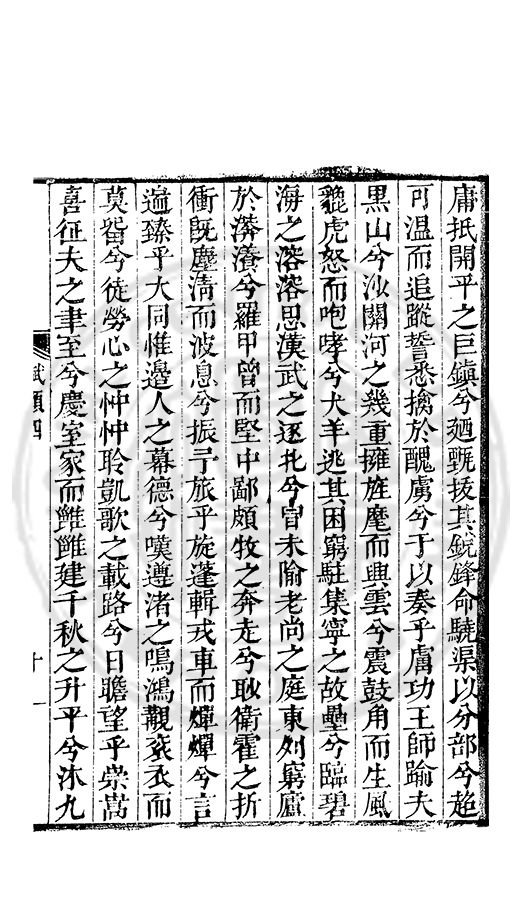 庸抵開平之巨鎮兮廼甄拔其銳鋒命驍渠以分部兮趂
可溫而追蹤誓悉擒於醜虜兮于以奏乎膚功王師踰夫
黑山兮沙關河之幾重擁旌麾而興雲兮震鼓角而生風
貔虎怒而咆哮兮犬羊逃其困窮駐集寧之故壘兮臨碧
海之溶溶思漢武之逐北兮曾未隃老尚之庭東列窮廬
於漭瀁兮羅甲曾而堅中鄙頗牧之奔走兮耿衛霍之折
衝旣塵清而波息兮振予旅乎旋蓬輯戎車而嘽嘽兮言
遄臻乎大同惟邊人之幕德兮嘆遵渚之鳴鴻覯袞衣而
莫畱兮徒勞心之忡忡聆凱歌之載路兮日瞻望乎崇嵩
喜征夫之聿至兮慶室家而雝雝建千秋之升平兮沐九
賦類四
十一